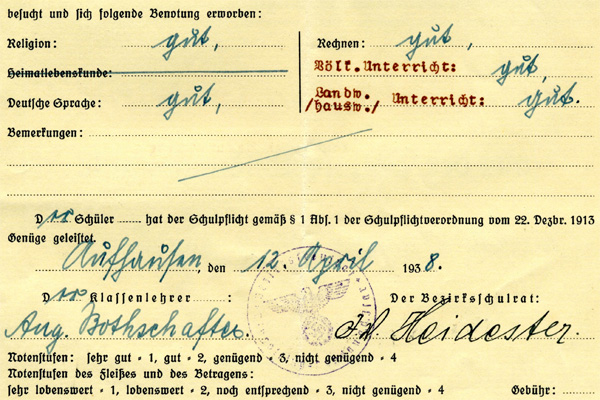 besucht und sich folgende Benotung erworben:
Religion: gut, Rechnen: gut,
Heimatlebenskunde: Völk. Unterricht: gut,
Deutsche Sprache: gut, Landw. /hausw./ Unterricht: gut.
Bemerkungen:
Der Schüler hat der Schulpflicht gemäß § 1 Abs. 1 der Schulpflichtverordnung vom 22. Dezbr. 1913
Genüge geleistet.
Aufhausen, den 12. April 1938.
Der Klassenlehrer: Der Bezirksschulrat:
Aug. Bothschafter. Heidester.
Notenstufen: sehr gut = 1, gut = 2, genügend = 3, nicht genügend = 4
Notenstufen des Fleißes und des Betragens:
sehr lobenswert = 1, lobenswert = 2, noch entsprechend = 3, nicht genügend = 4 Gebühr: